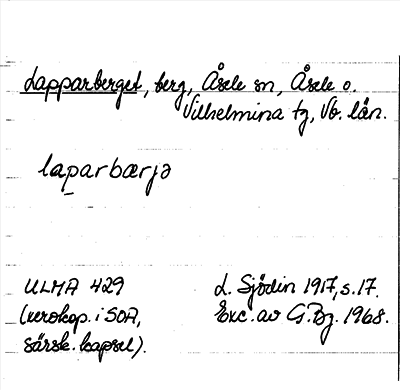 Lapparberget, berg, Åsele sn, Åsele o.
Vilhelmina tg, Vb. län.
lap̠arbærjə
ULMA 429
(xerokop. i SOA,
särsk. kapsel).
L. Sjödin 1917, s. 17.
Exc. av G. Bg. 1968.